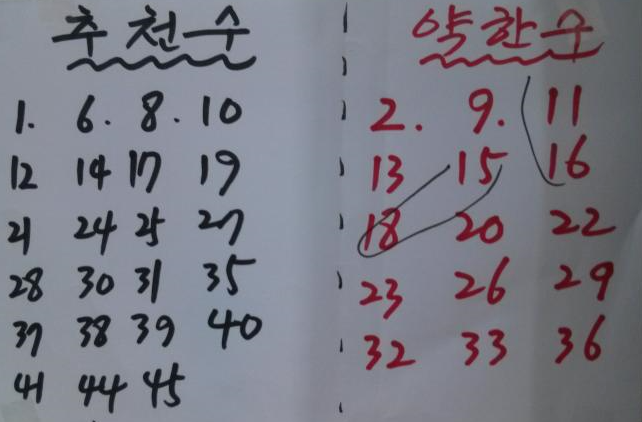 추천수
1. 6. 8. 10
12 14 17 19
21 24 25 27
28 30 31 35
37 38 39 40
41 44 45
약한수
2. 9. 11
13 15 16
18 20 22
23 26 29
32 33 36